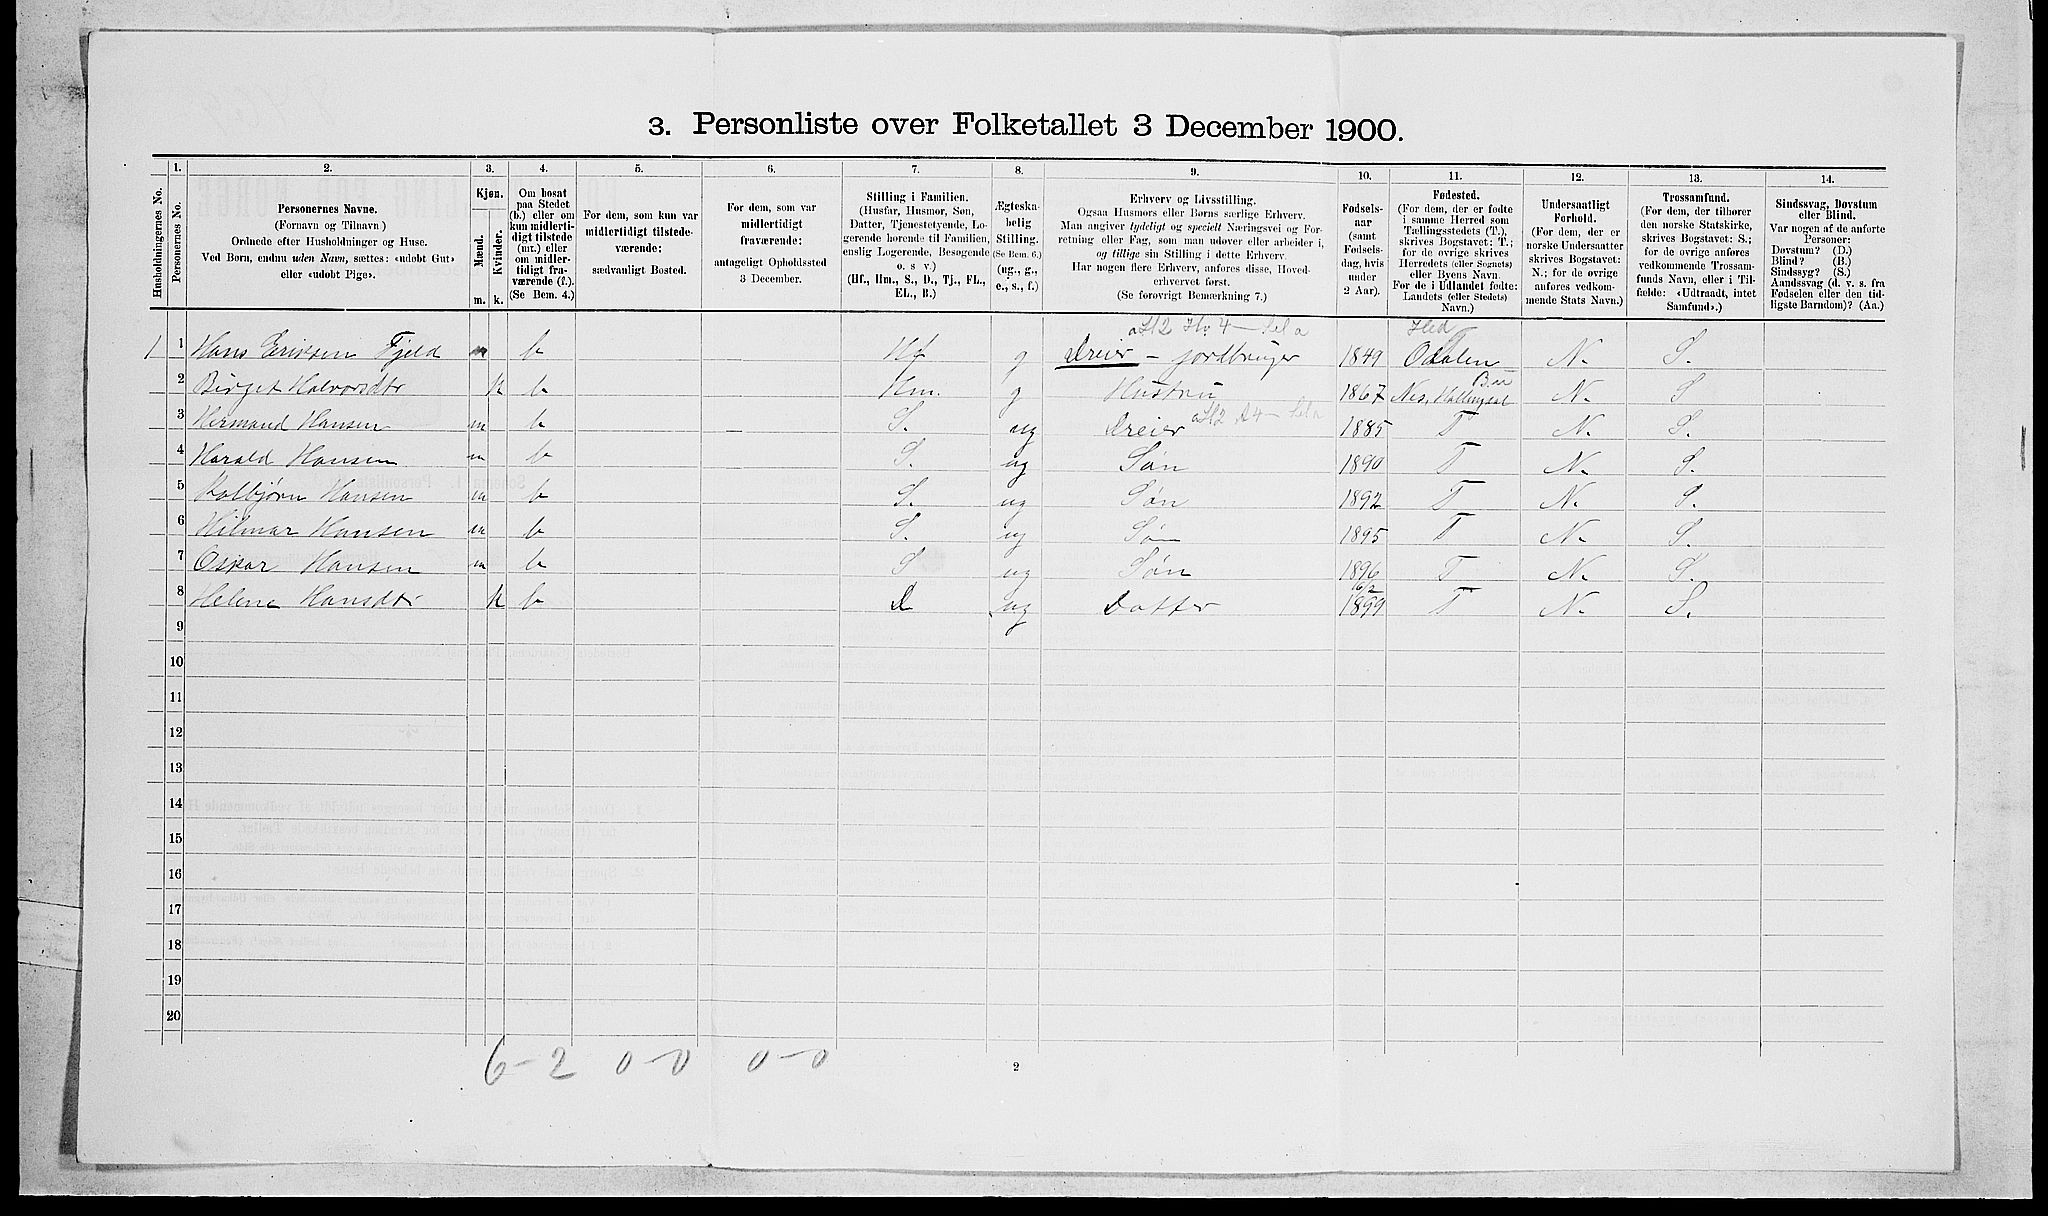 3. Personliste over Folketallet 3 December 1900.
Husholdningernes No.
1.
Personernes No.
2.
Personernes Navne.
(Fornavn og Tilnavn)
Ordnede efter Husholdninger og Huse.
Ved Børn, endnu uden Navn, sættes: «udøbt Gut»
eller «udøbt Pige».
3.
Kjøn.
Mænd.
Kvinder.
m. k.
4.
Om bosat
paa Stedet
(b.) eller om
kun midlerti-
digt tilstede
(mt.) eller
om midler-
tidigt fra-
værende (f.).
(Se Bem. 4.)
5.
For dem, som kun var
midlertidigt tilstede-
værende:
sædvanligt Bosted.
6.
For dem, som var
midlertidigt
fraværende:
antageligt Opholdssted
3 December.
7.
Stilling i Familien.
(Husfar, Husmor, Søn,
Datter, Tjenestetyende, Lo-
gerende hørende til Familien,
enslig Logerende, Besøgende
o. s v.)
(Hf., Hm., S., D., Tj., FL.,
EL., B.)
8.
Ægteska-
belig
Stilling.
(Se Bem. 6.)
(ug., g.,
e., s., f.)
9.
Erhverv og Livsstilling.
Ogsaa Husmors eller Børns særlige Erhverv.
Man angiver tydeligt og specielt Næringsvei og For-
retning eller Fag, som man udøver eller arbeider i,
og tillige sin Stilling i dette Erhverv.
Har nogen flere Erhverv, anføres disse, Hoved-
erhvervet først.
(Se forøvrigt Bemærkning 7.)
10.
Fødsels-
aar
(samt
Fødsels-
dag, hvis
under
2 Aar).
11.
Fødested.
(For dem, der er fødte
i samme Herred som
Tællingsstedets (T.),
skrives Bogstavet: T.;
for de øvrige skrives
Herredets (eller Sognets)
eller Byens Navn.
For de i Udlandet fødte:
Landets (eller Stedets)
Navn.)
12.
Undersaatligt
Forhold.
(For dem, der er
norske Undersaatter
skrives Bogstavet:
N.; for de øvrige
anføres vedkom-
mende Stats Navn.)
13.
Trossamfund.
(For dem, der tilhører
den norske Statskirke,
skrives Bogstavet: S.;
for de øvrige anføres
vedkommende Trossam-
funds Navn, eller i Til-
fælde: «Udtraadt, intet
Samfund».)
14.
Sindssvag, Døvstum
eller Blind.
Var nogen af de anførte
Personer:
Døvstum? (D.)
Blind? (B.)
Sindssyg? (S.)
Aandssvag (d. v. s. fra
Fødselen eller den tid-
ligste Barndom)? (Aa.)
1 1 Hans Eriksen Fjeld m b Hf g Dreier – jordbruger 1849 Odalen N. S.
2 Birget Halvorsdtr k b Hm. g Hustru 1867 Nes, Hallingdal N. S
3 Hermand Hansen m b S. ug Dreier 1885 T N. S.
4 Harald Hansen m b S. ug Søn 1890 T N. S.
5 Kolbjørn Hansen m b S. ug Søn 1892 T N. S.
6 Hilmar Hansen m b S. ug Søn 1895 T N. S.
7 Oskar Hansen m b S ug Søn 1896 T N. S.
8 Helene Hansdtr k b D ug Datter 16/2 1899 T N. S.
9
10
11
12
13
14
15
16
17
18
19
20
6-2 0-0 0-0
2